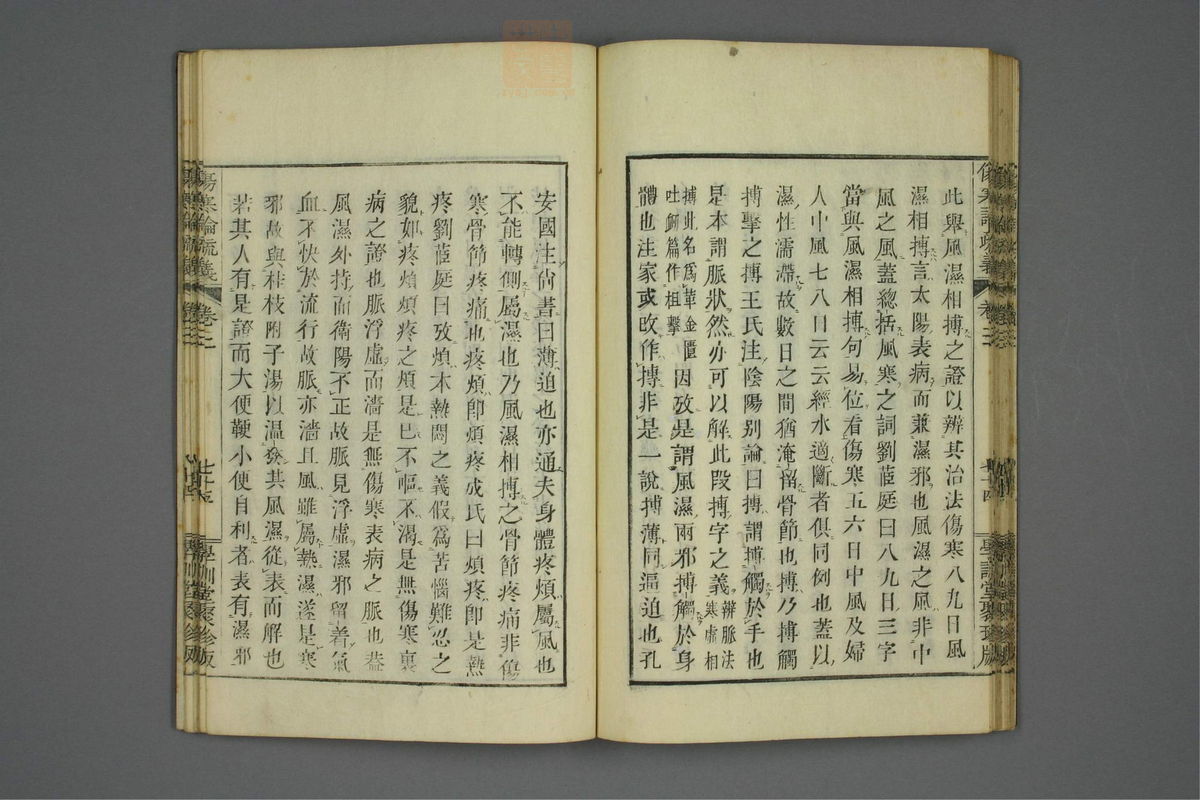 此舉風濕相搏之證以辨其治法傷寒八九日風
濕相搏言太陽表病而兼濕邪也風濕之風非中
風之風蓋總括風寒之詞劉茝庭曰八九日三字
當與風濕相搏句易位看傷寒五六日中風及婦
人中風七八日云云經水適斷者俱同例也蓋以
濕性濡滯故數日之間猶淹留骨節也搏乃搏觸
搏擊之搏王氏注陰陽别論曰搏謂搏觸於手也
是本謂脈狀然亦可以解此段搏字之義辨脈法寒虛相
搏此名爲革金匱吐衄篇作相擊因攷是謂風濕兩邪搏觸於身
體也注家或改作摶非是一說搏薄同逼迫也孔
安國注尙書曰薄迫也亦通夫身體疼煩屬風也
不能轉側屬濕也乃風濕相搏之骨節疼痛非傷
寒骨節疼痛也疼煩卽煩疼成氏曰煩疼卽是熱
疼劉茝庭曰攷煩本熱悶之義假爲苦惱難忍之
貌如疼煩煩疼之煩是已不嘔不渴是無傷寒裏
病之證也脈浮虛而濇是無傷寒表病之脈也蓋
風濕外持而衛陽不正故脈見浮虛濕邪留着氣
血不快於流行故脈亦濇且風雖屬熱濕遂是寒
邪故與桂枝附子湯以温發其風濕從表而解也
若其人有是證而大便鞕小便自利者表有濕邪
傷寒論疏義
卷二
七十四
學訓堂聚珍版